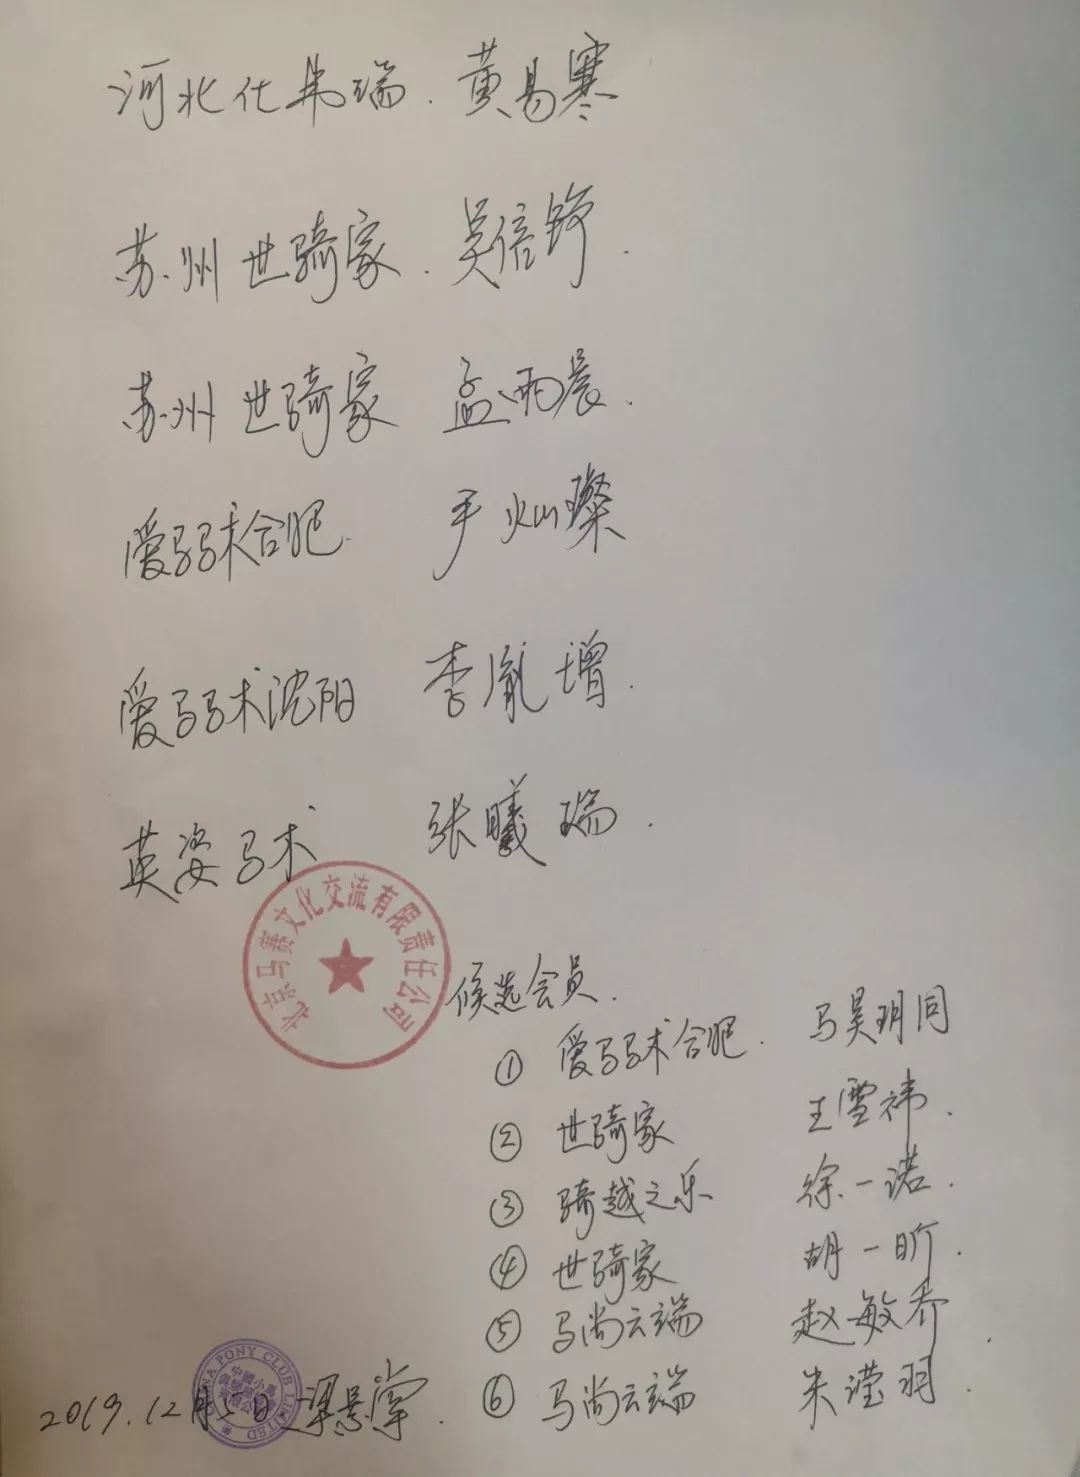 河北仕弗瑞. 黄易寒
苏州世骑家. 吴倍舒.
苏州世骑家 孟雨晨.
爱马马术合肥. 尹灿璨
爱马马术沈阳 李胤增.
英姿马术 张曦瑞.
北京马赛文化交流有限责任公司
候选会员.
① 爱马马术合肥. 马昊玥同
② 世骑家 王雪祎.
③ 骑越之乐 徐一诺.
④ 世骑家 胡一昕.
⑤ 马尚云端 赵敏乔.
⑥ 马尚云端 朱滢羽
PONY CLUB LIMITED
2019.12月5日